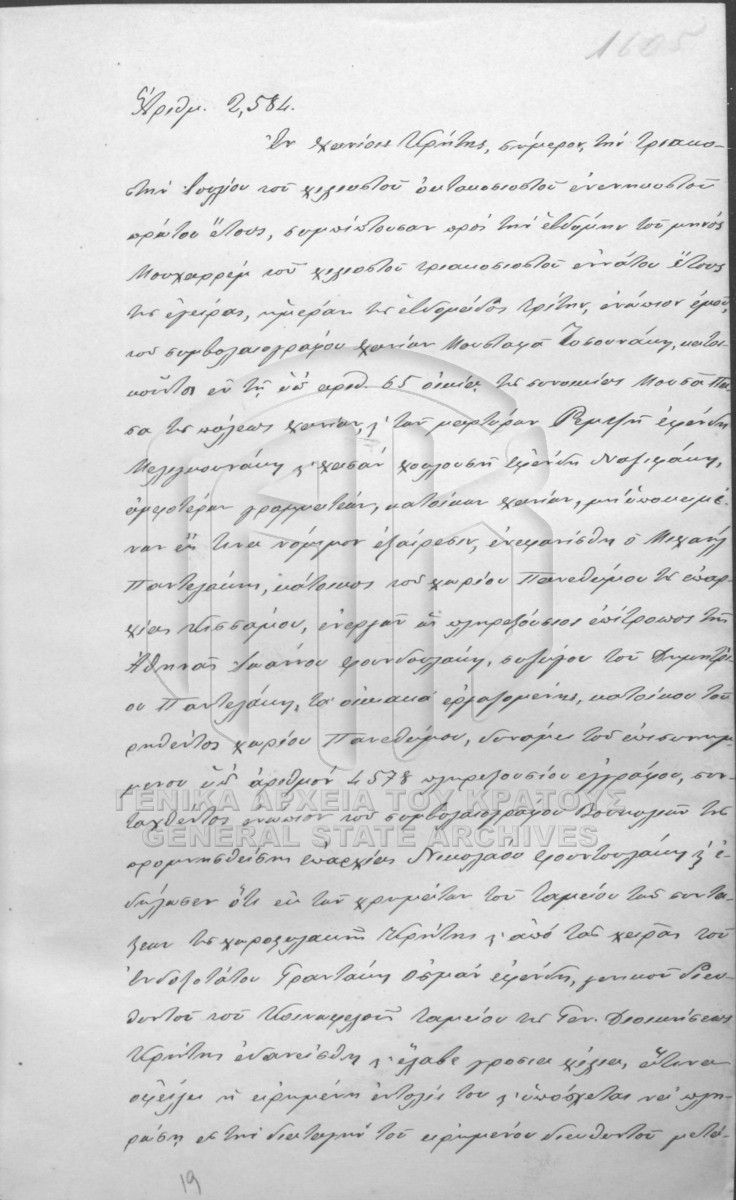 1605
Ἀριθμ. 2,584.
Ἐν Χανίοις Κρήτης, σήμερον, τὴν τριακο-
στὴν Ἰουλίου τοῦ χιλιοστοῦ ὀκτακοσιοστοῦ ἐνενηκοστοῦ
πρώτου ἔτους, συμπίπτουσαν πρὸς τὴν ἑβδόμην τοῦ μηνὸς
Μουχαρρὲμ τοῦ χιλιοστοῦ τριακοσιοστοῦ ἐννάτου ἔτους
τῆς ἐγείρας, ἡμέραν τῆς ἑβδομάδος τρίτην, ἐνώπιον ἐμοῦ,
τοῦ συμβολαιογράφου Χανίων Μουσταφᾶ κατοι-
κοῦντος ἐν τῇ ὑπ' ἀριθ. 65 οἰκίᾳ τῆς συνοικίας Μουσᾶ Πα-
σᾶ τῆς πόλεως Χανίων, & τῶν μαρτύρων Ρεμζῆ ἐφένδη
& Χασὰν ἐφένδη
ἀμφοτέρων γραμματέων, κατοίκων Χανίων, μὴ ὑποκειμέ-
νων εἴς τινα νόμιμον ἐξαίρεσιν, ἐνεφανίσθη ὁ Μιχαὴλ
Παντελάκης, κάτοικος τοῦ χωρίου Πανεθύμου τῆς ἐπαρ-
χίας Κισσάμου, ἐνεργῶν ὡς πληρεξούσιος ἐπίτροπος τῆς
Ἀθηνᾶς Ἰωάννου Φουνδουλάκη, συζύγου τοῦ Δημητρί-
ου Παντελάκη, τὰ οἰκιακὰ ἐργαζομένης, κατοίκου τοῦ
ρηθέντος χωρίου Πανεθύμου, δυνάμει τοῦ ἐπισυνημ-
μένου ὑπ' ἀριθμὸν 4578 πληρεξουσίου ἐγγράφου, συν-
ταχθέντος ἐνώπιον τοῦ συμβολαιογράφου Βουκολιῶν τῆς
προμνησθείσης ἐπαρχίας Νικολάου Φουντουλάκη & ἐ-
δήλωσεν ὅτι ἐκ τῶν χρημάτων τοῦ ταμείου τῶν συντά-
ξεων τῆς χωροφυλακῆς Κρήτης & ἀπὸ τὰς χεῖρας τοῦ
ἐνδοξοτάτου Γραντάκη Ὀσμὰν ἐφένδη, γενικοῦ διευ-
θυντοῦ τοῦ Κοινωφελοῦς ταμείου τῆς Γεν. Διοικήσεως
Κρήτης ἐδανείσθη & ἔλαβε γρόσια χίλια, ἅτινα
ὀφείλει ἡ εἰρημένη ἐντολεύς του & ὑπόσχεται νὰ πλη-
ρώσῃ εἰς τὴν διαταγὴν τοῦ εἰρημένου διευθυντοῦ μετὰ-
19
ΓΕΝΙΚΑ ΑΡΧΕΙΑ ΤΟΥ ΚΡΑΤΟΥΣ
GENERAL STATE ARCHIVES